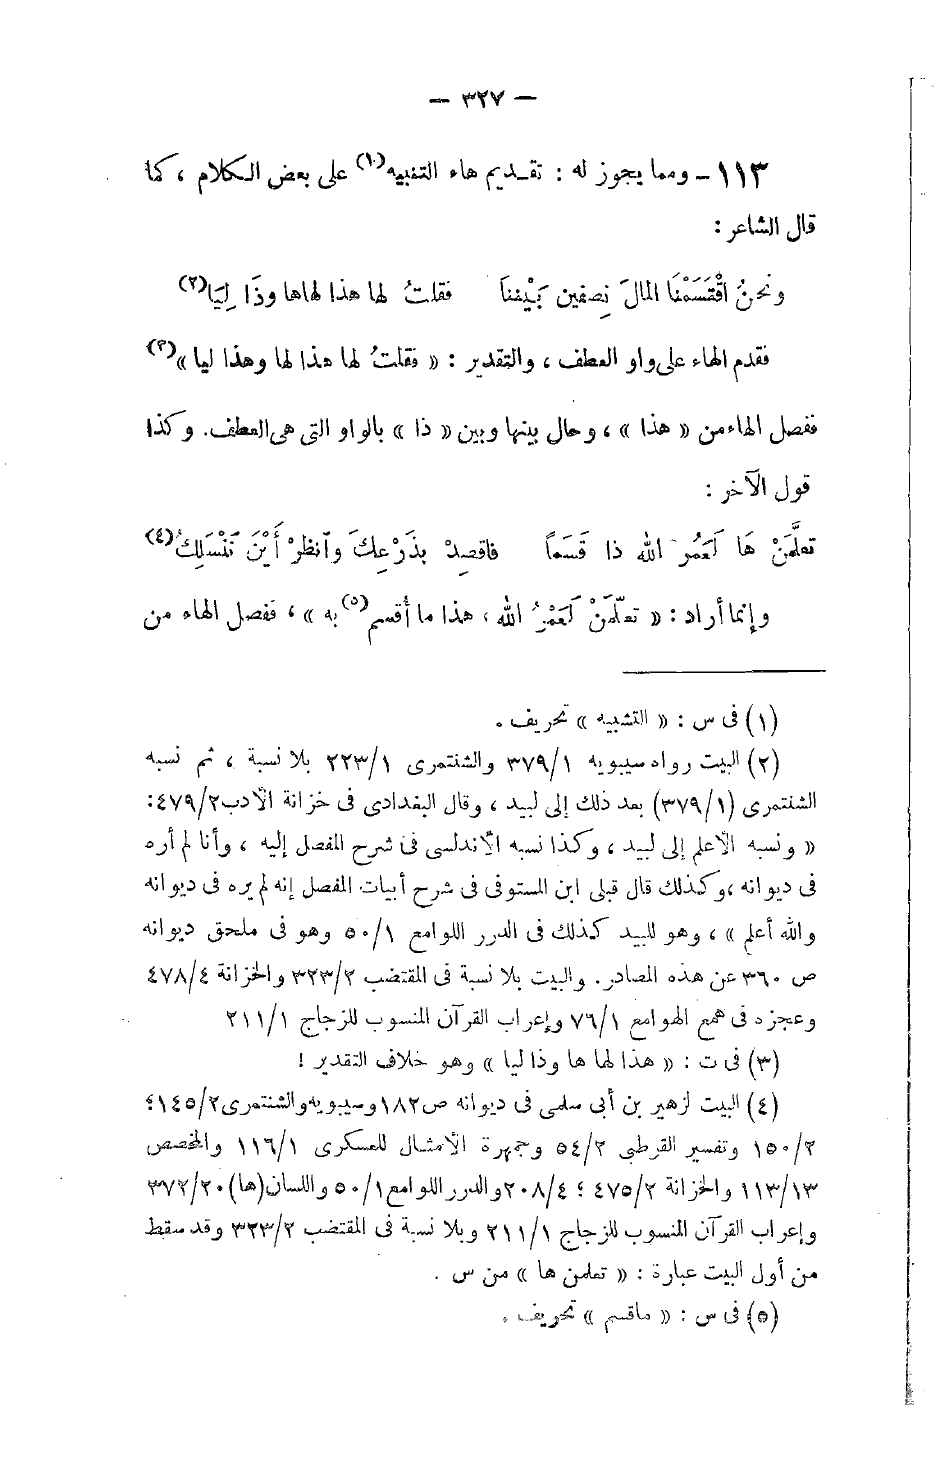 — ٣٢٧ —
١١٣ – ومما يجوز له : تقـديم هاء التنبيه(١) على بعض الـكلام ، كما
قال الشاعر :
ونحنُ اقْتَسَمْنَا المالَ نِصفين بَيْننَا فقلتُ لها هذا لهاها وذَا لِيَا(٢)
فقدم الهاء على واو العطف ، والتقدير : « فقلتُ لها هذا لها وهذا ليا »(٣)
ففصل الهاء من « هذا » ، وحال بينها وبين « ذا » بالواو التى هى العطف . وكذا
قول الآخر :
تعلَّمَنْ هَا لَعَمْرُ الله ذا قَسَماً فاقصِدْ بِذَرْعِكَ وانظرْ أَيْنَ تَنْسَلِكُ(٤)
وإنما أراد : « تعلّمَنْ لَعَمْرُ الله ، هذا ما أُقسم(٥) به » ، ففصل الهاء من
(١) فى س : « التشبيه » تحريف .
(٢) البيت رواه سيبويه ٣٧٩/١ والشنتمرى ٢٢٣/١ بلا نسبة ، ثم نسبه
الشنتمرى (٣٧٩/١) بعد ذلك إلى لبيد ، وقال البغدادى فى خزانة الأدب ٤٧٩/٢ :
« ونسبه الأعلم إلى لبيد ، وكذا نسبه الأندلسى فى شرح المفصل إليه ، وأنا لم أره
فى ديوانه ، وكذلك قال قبلى ابن المستوفى فى شرح أبيات المفصل إنه لم يره فى ديوانه
والله أعلم » ، وهو للبيد كذلك فى الدرر اللوامع ٥٠/١ وهو فى ملحق ديوانه
ص ٣٦٠ عن هذه المصادر . والبيت بلا نسبة فى المقتضب ٣٢٣/٢ والخزانة ٤٧٨/٤
وعجزه فى همع الهوامع ٧٦/١ وإعراب القرآن المنسوب للزجاج ٢١١/١
(٣) فى ت : « هذا لها ها وذا ليا » وهو خلاف التقدير !
(٤) البيت لزهير بن أبى سلمى فى ديوانه ص ١٨٢ وسيبويه والشنتمرى ١٤٥/٢ ؛
١٥٠/٢ وتفسير القرطبى ٥٤/٢ وجمهرة الأمثال للعسكرى ١١٦/١ والمخصص
١١٣/١٣ والخزانة ٤٧٥/٢ ؛ ٢٠٨/٤ والدرر اللوامع ٥٠/١ واللسان (ها) ٣٧٢/٢٠
وإعراب القرآن المنسوب للزجاج ٢١١/١ وبلا نسبة فى المقتضب ٣٢٣/٢ وقد سقط
من أول البيت عبارة : « تعلمن ها » من س .
(٥) فى س : « ماقسم » تحريف .